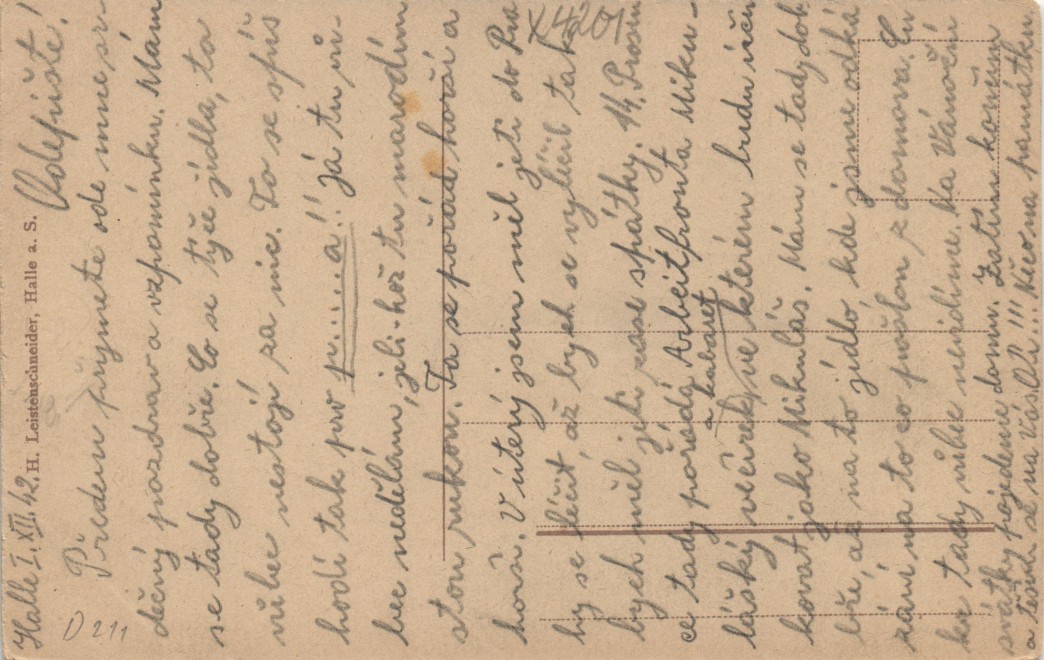 Halle I. XII. 42.
Předem přijmete ode mne sr-
dečný pozdrav a vzpomínku. Mám
se tady dobře. Co se týče jídla, to
vůbec nestojí za nic. To se spíš
hodí tak pro p.....a!! Já tu vů-
bec nedělám, jeli-kož tu marodím
s tou rukou. Ta se pořád horší a
horší. V úterý jsem měl jeti do Pra
hy se léčit, až bych se vyléčil tak
bych měl jeti zase zpátky. 14. Prosin
ce tady pořádá Arbeitfronta Miku-
lášský večírek a kabaret, ve kterém budu účin
kovat jako Mikuláš. Mám se tady dob
ře, až na to jídlo kde jsme odká
záni na to co pošlou z domova. Cu
kr tady vůbec nevidíme. Na Vánoční
svátky pojedeme domu. Zatím končím
a těším se na Vás Oli!!! Něco na památku.
H. Leistenschneider, Halle a. S.
X4201
D 211